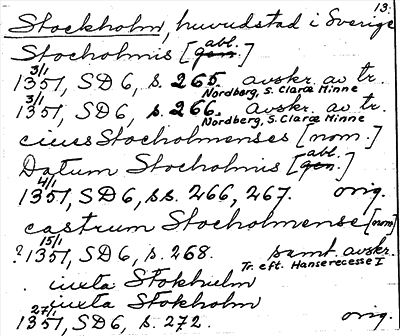 13.
Stockholm, huvudstad i Sverige
Stocholmis [gen. abl.]
3/1
1351, SD 6, s. 265. avskr. av tr.
Nordberg, S. Claræ Minne
3/1
1351, SD 6, s. 266. avskr. av tr.
Nordberg, S. Claræ Minne
cives Stocholmenses [nom.]
Datum Stocholmis [gen. abl.]
4/1
1351, SD 6, ss. 266, 267. orig.
castrum Stocholmense [nom]
15/1
?1351, SD 6, s. 268. samt. avskr.
Tr. eft. Hanserecesse I
iuxta Stokhulm
iuxta Stokholm
27/1
1351, SD 6, s. 272. orig.